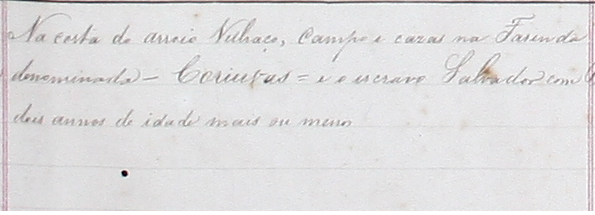 Na costa do arroio Velhaco, Campo e cazas na Fasenda
denominada – Coriutas = e o escravo Salvador com
dois annos de idade mais ou menos